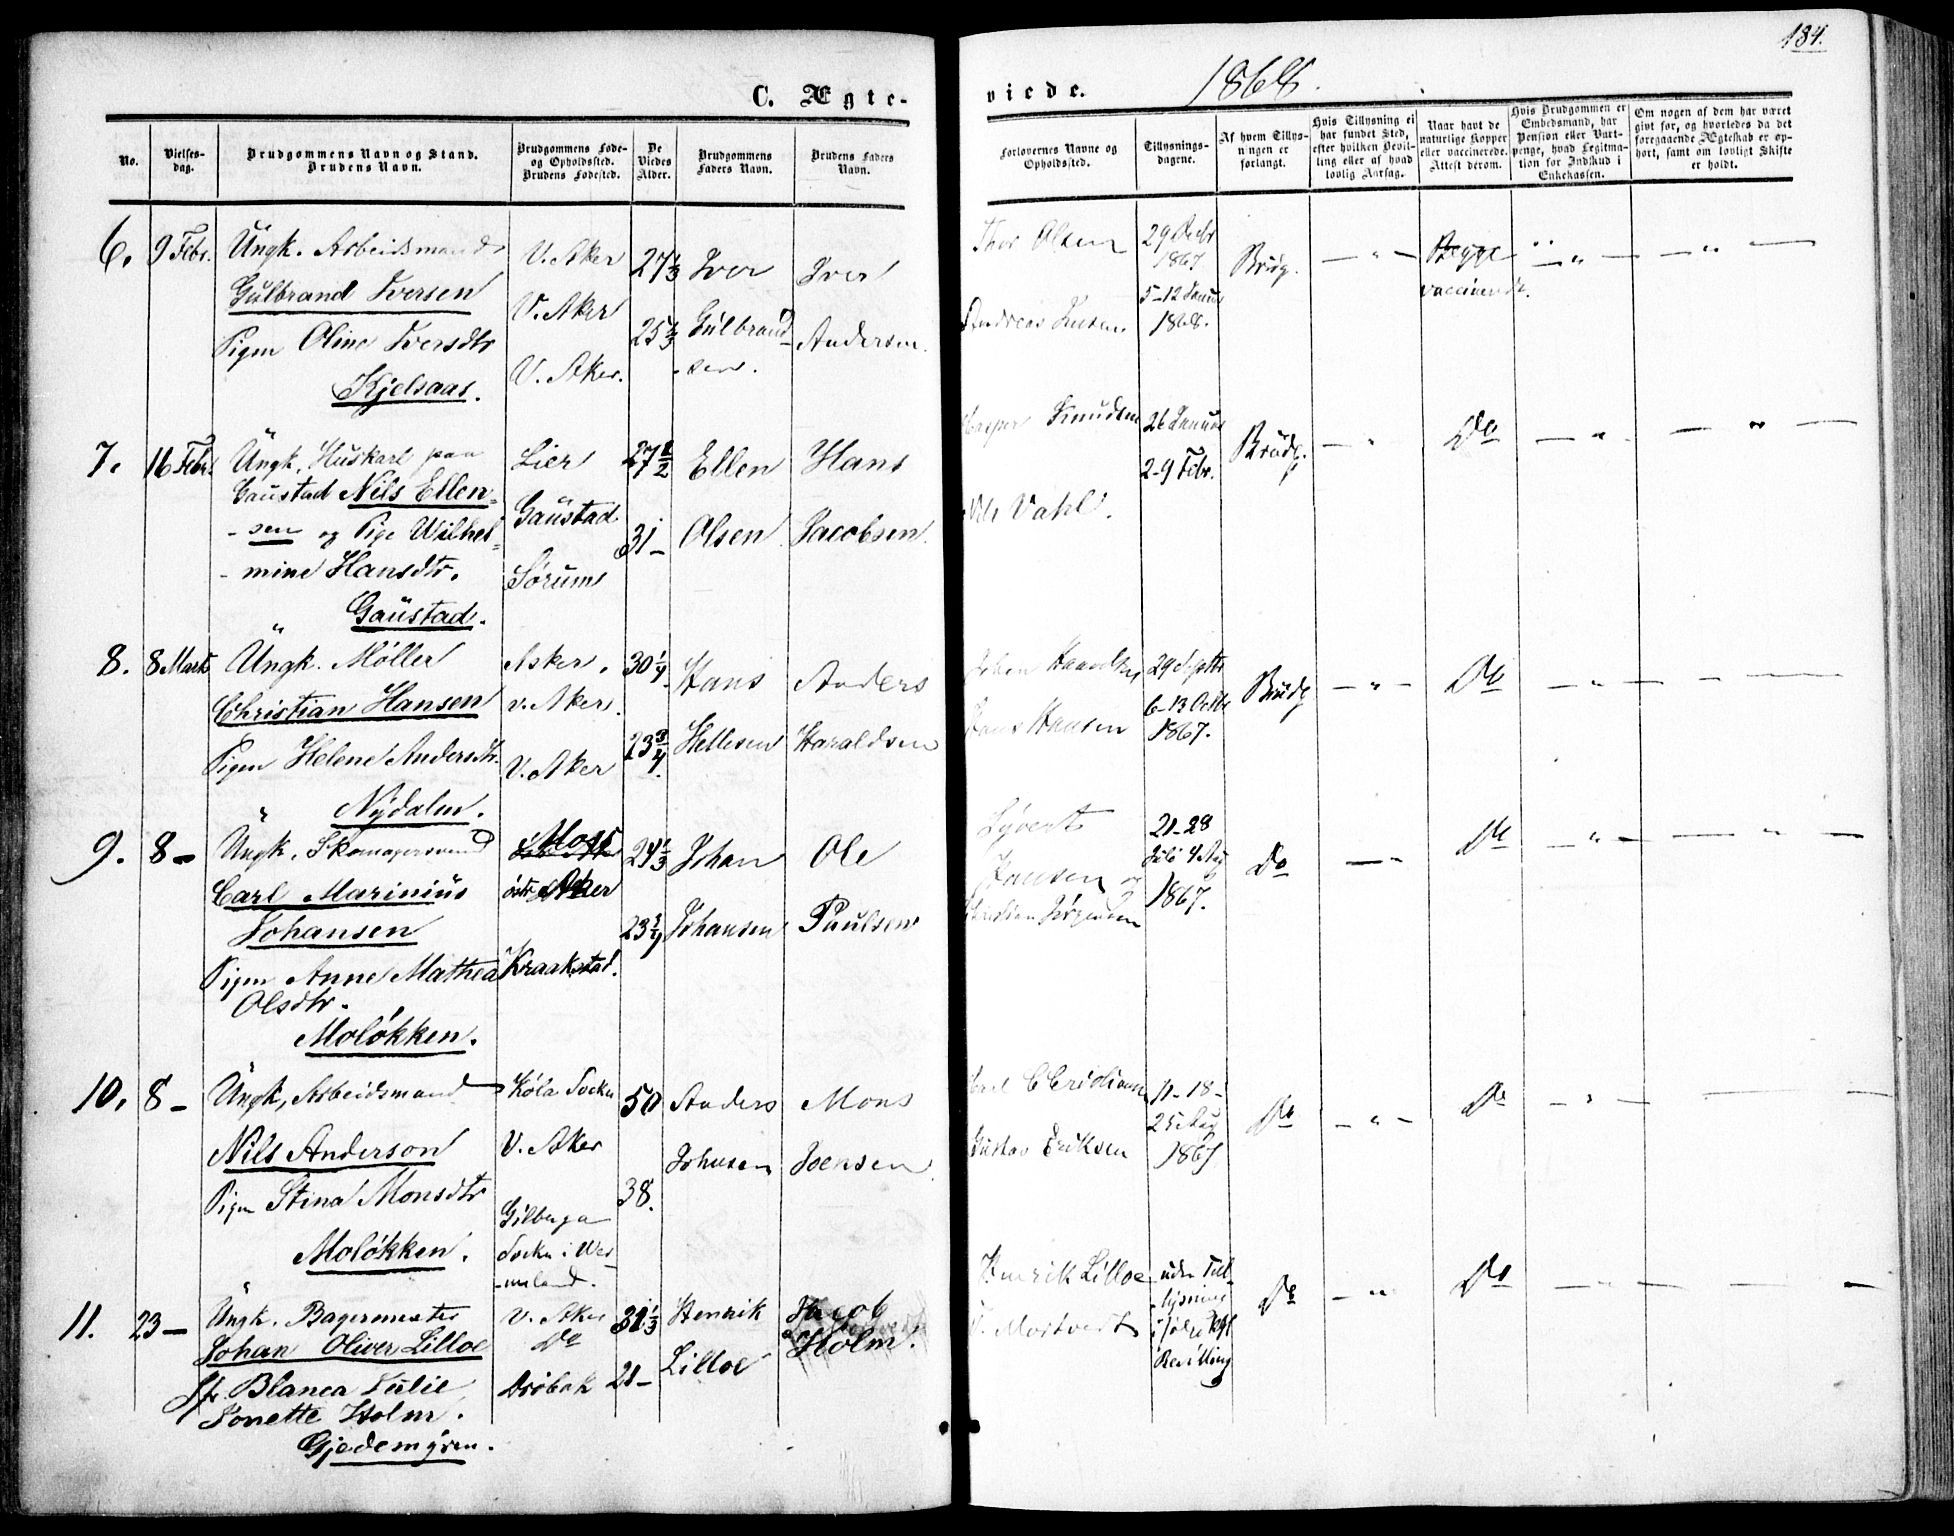 134.
C. Ægte-
viede. 1868.
No.
Vielses-
dag.
Brudgommens Navn og Stand.
Brudens Navn.
Brudgommens Føde-
og Opholdssted.
Brudens Fødested.
De
Viedes
Alder.
Brudgommens
Faders Navn.
Brudens Faders
Navn.
Forlovernes Navne og
Opholdssted.
Tillysnings-
dagene.
Af hvem Tillys-
ningen er
forlangt.
Hvis Tillysning ei
har fundet Sted,
efter hvilken Bevil-
ling eller af hvad
lovlig Aarsag.
Naar havt de
naturlige Kopper
eller vaccinerede.
Attest derom.
Hvis Brudgommen er
Embedsmand, har
Pension eller Vart-
penge, hvad Legitima-
tion for Indskud i
Enkekassen.
Om nogen af dem har været
gift før, og hvorledes da det
foregaaende Ægteskab er op-
hørt, samt om lovligt Skifte
er holdt.
6. 9 Febr.
Ungk. Arbeidsmand
Gulbrand Iversen
Pigen Oline Iversdtr
Kjelsaas.
V. Aker
V. Aker
V. Aker.
27 1/3
25 1/3
Iver
Gulbrand-
-sen.
Iver
Andersen.
Thor Olsen
Andreas
29 Decbr
1867
5-12 Januar
1868.
Brudg.
— " —
Begge
vaccinerede.
— " —
— " —
7. 16 Febr.
Ungk. Huskarl paa
Gaustad Nils Ellen-
-sen og Pige Wilhel-
-mine Hansdtr.
Gaustad.
Lier
Gaustad
Sørum
27 1/2
31 -
Ellen
Olsen
Hans
Jacobsen.
Knudsen
Nils Vahl.
26 Januar
2-9 Febr.
Brudg.
— " —
Do
— " —
— " —
8. 8 Marts
Ungk. Møller
Christian Hansen
Pigen Helene Andersdtr.
Nydalen.
Asker.
v. Aker.
V. Aker
30 1/4
23 3/4
Hans
Hellesen
Anders
Haraldsen
Johan
Hans Hansen
29 Septbr
6-13 Octbr
1867.
Brudg
— " —
Do
— " —
9. 8 -
Ungk. Skomagersvend
Carl Marinius
Johansen
Pigen Anne Mathea
Olsdtr.
Moløkken.
Moss
Aker
Kraakstad.
24 1/3
23 3/4
Johan
Johansen
Ole
Paulsen
Syvert
Hansen og
Christian Jörgensen
21-28
Juli 4 Aug
1867.
Do
— " —
Do
— " —
— " —
10. 8 -
Ungk, Arbeidsmand
Nils Anderson
Pigen Stina Monsdtr
Moløkken.
Köla Socken
V. Aker
Gilberga
Socken i Wer-
-meland.
50
38.
Anders
Johnsen
Mons
Joensen
Carl Christiansen
Gustav Eriksen
11-18-
25 Aug
1867
Do
— " —
Do
— " —
11. 23 -
Ungk. Bagermester
Johan Oliver Lilloe
Jfr. Blanca Julie
Jonette Holm.
Gjedemyren.
V. Aker
Do
Drøbak
31 1/3
21 -
Henrik
Lilloe
Jacob
Holm.
Henrik Lilloe
uden Til-
-lysning
ifølge Kgl
Bevilling
Do
— " —
Do